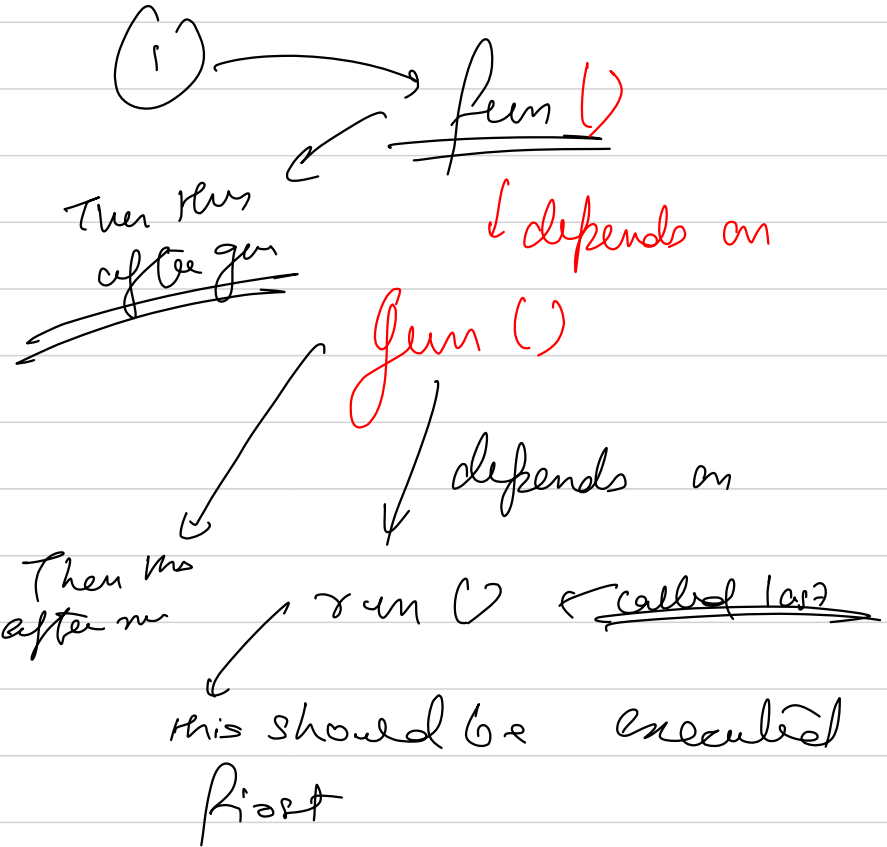 1
fun ()
Then this
after gun
depends on
gun ()
depends on
Then this
after run
run () called last
this should be executed
first